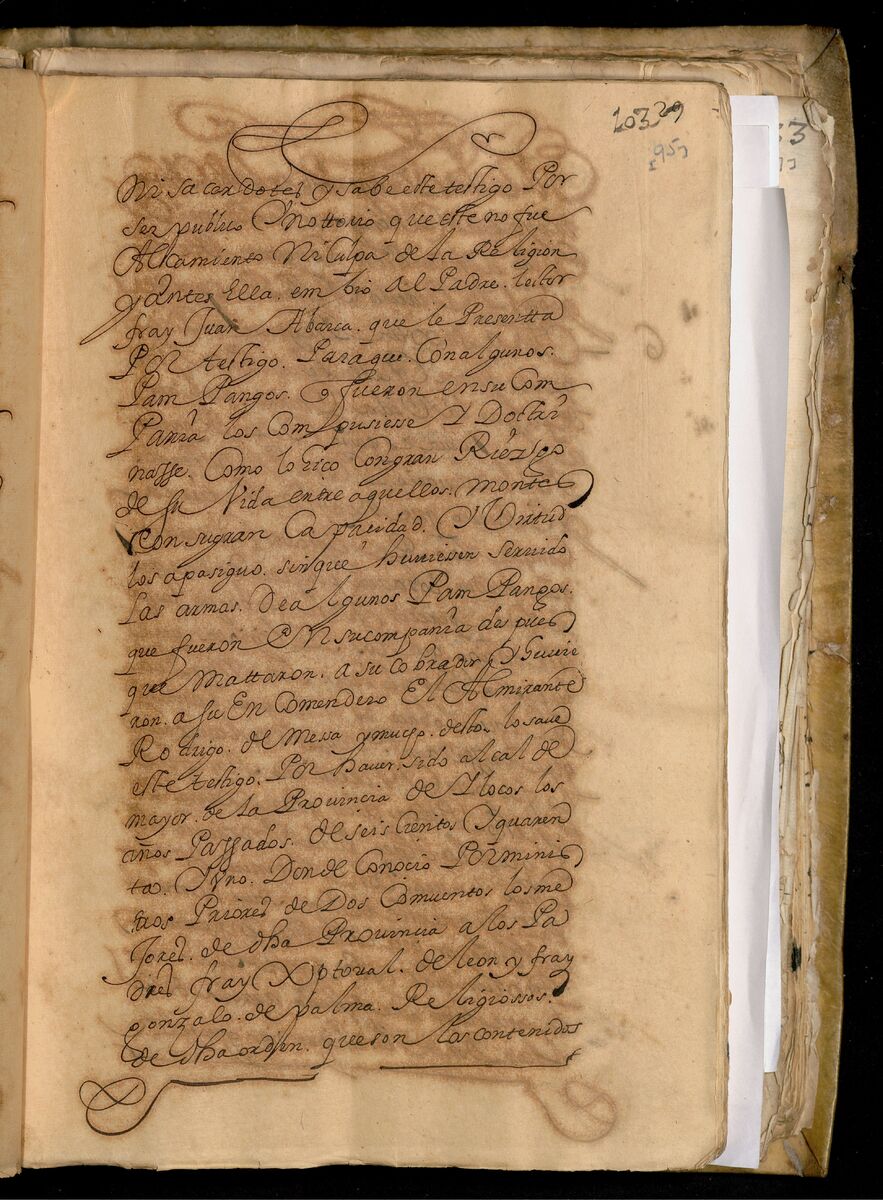 10329
[95]
Ni sacerdotes y sabe este testigo Por
ser publico Y nottorio que este no fue
Alcamiento Ni culpa de la Religion
y antes Ella. embio al Padre. lector
fray Juan Abarca. que le Presentta
Por testigo. Para que. Con algunos.
Pam Pangos. q fueron en su Com
Pañia los Compusiesse Y Doctri
nasse. Como lo hiço Con gran Riezgo
de su Vida entre aquellos. montes
Y Con su gran Capacidad. Y Virtud
los apasiguo. sin que huuiessen seruido
Las armas. De algunos Pam Pangos.
que fueron En su compañia despues
que Mattaron. a su cobrador Y huuie
ron. a su En Comendero El Almirante
Rodrigo. de Messa y mucho. desto. lo saue
este testigo. Por hauer. sido alcalde
mayor. de la Provincia de Ylocos los
años Passados. de seiscientos Y quaren
ta. Y Vno. Donde Conocio Por minis
tros Priores de Dos Comuentos los me
Jores. de dha Provincia a los Pa
dres fray Xptoual. de leon y fray
gonzalo. de palma. Religiossos.
de dha orden. que son los contenidos